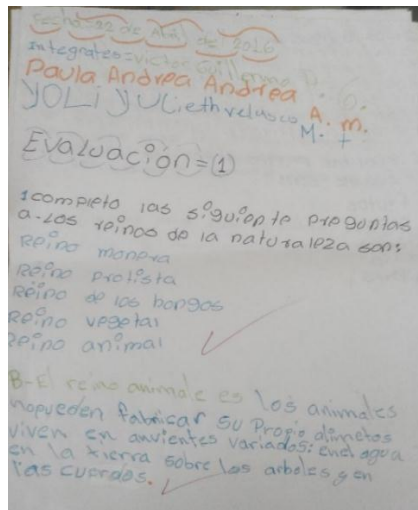 Fecha=92 de Abril de 2016
integrates=victor Guillermo P. O.
Paula Andrea Andrea A. m.
yoLi yuLieth velasco M. t
Evaluación=(1)
1completo las siguiente preguntas
a-Los reinos de la naturaleza son:
Reino monera
Reino protista
Reino de los hongos
Reino vegetal
Reino animal
B-El reino animale es los animales
nopueden fabricar su Propio alimetos
viven en anvientes variados: enel agua
en la tierra sobre los arboles y en
las cuerdos.